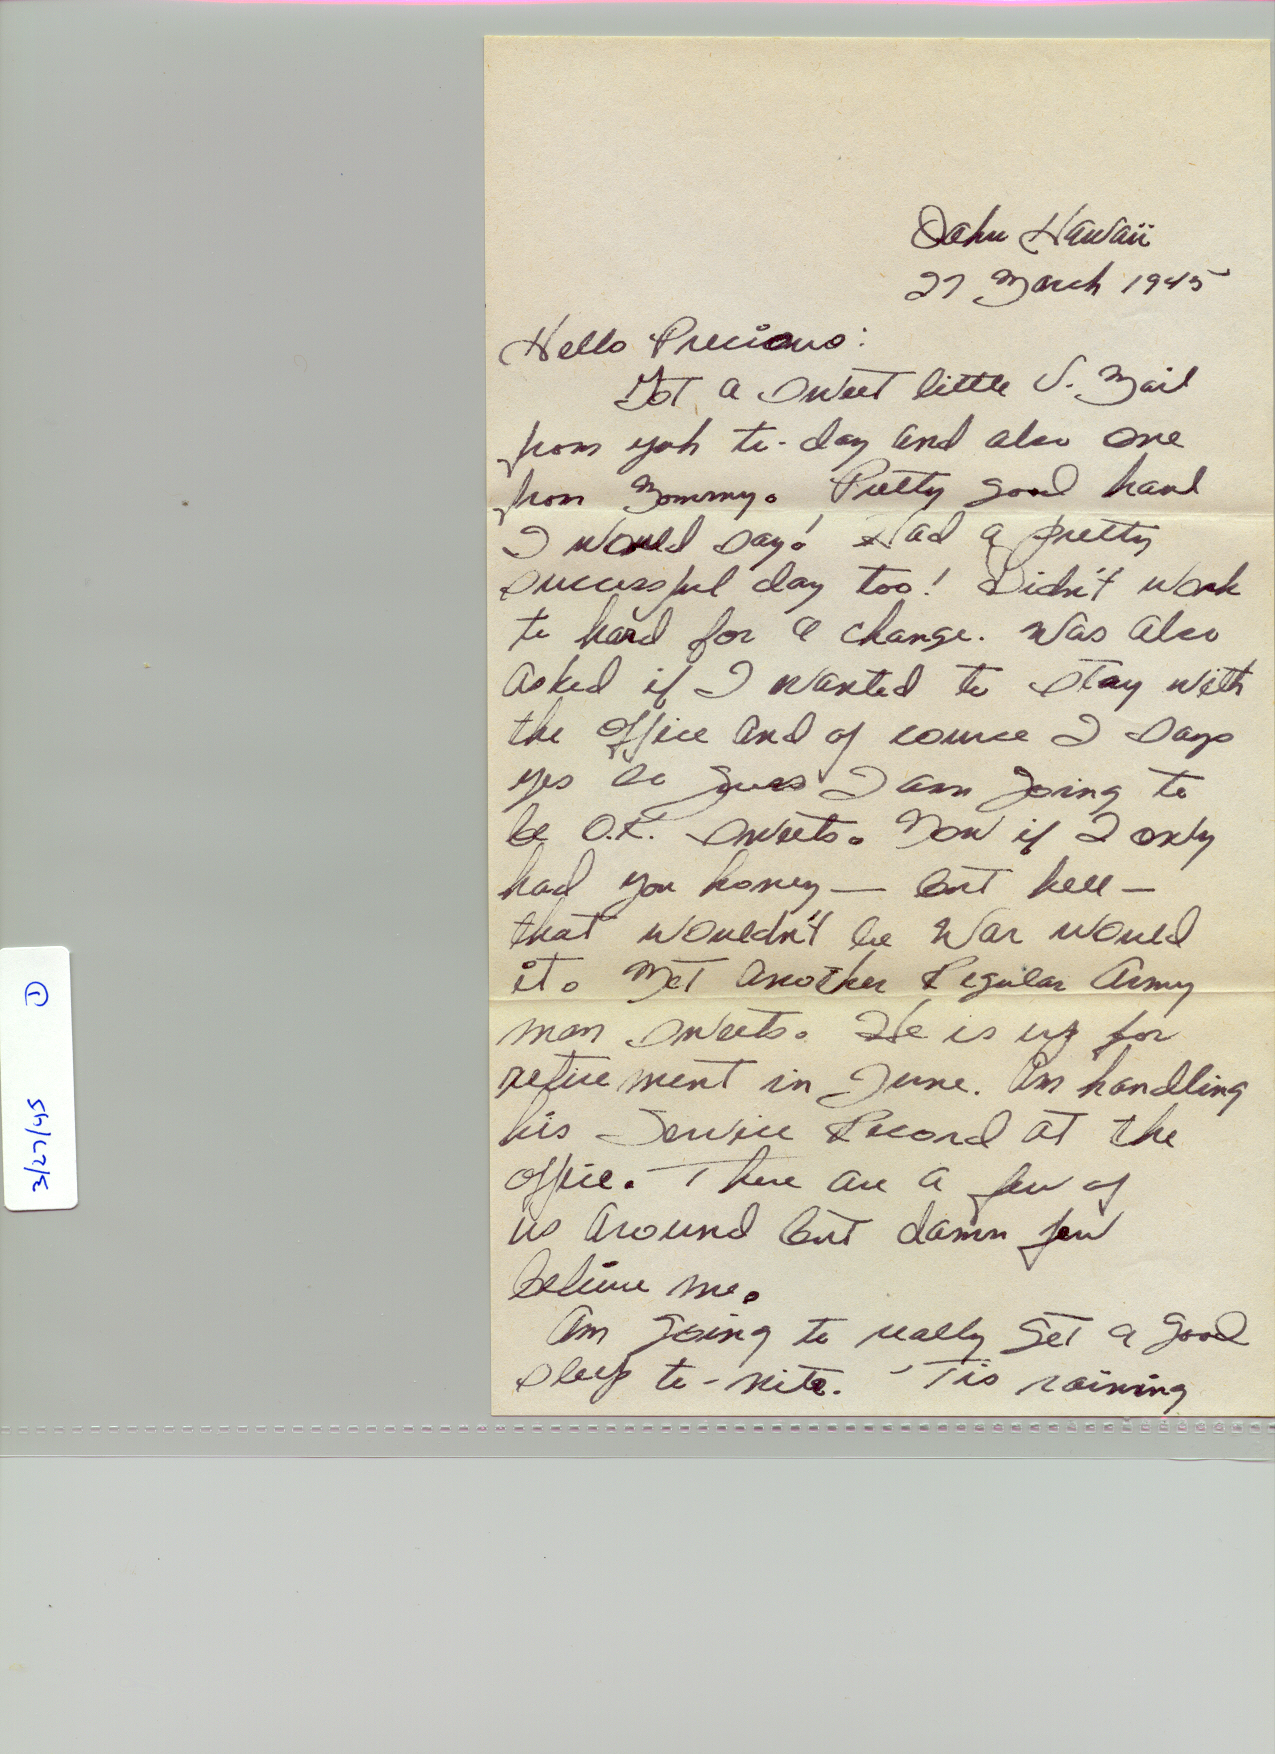 Oahu Hawaii
27 March 1945
Hello Precious:
Got a sweet little V. Mail
from yuh to-day and also one
from Mommy. Pretty good haul
I would say! Had a pretty
successful day too! Didn't work
to hard for a change. Was also
asked if I wanted to stay with
the office and of course I says
yes so guess I am going to
be O.K. sweets. Now if I only
had you honey — but hell —
that wouldn't be war would
it. Met another Regular Army
man sweets. He is up for
retirement in June. Am handling
his Service Record at the
office. There are a few of
us around but damn few
believe me.
Am going to really get a good
sleep to-nite. 'Tis raining
3/27/45 ①